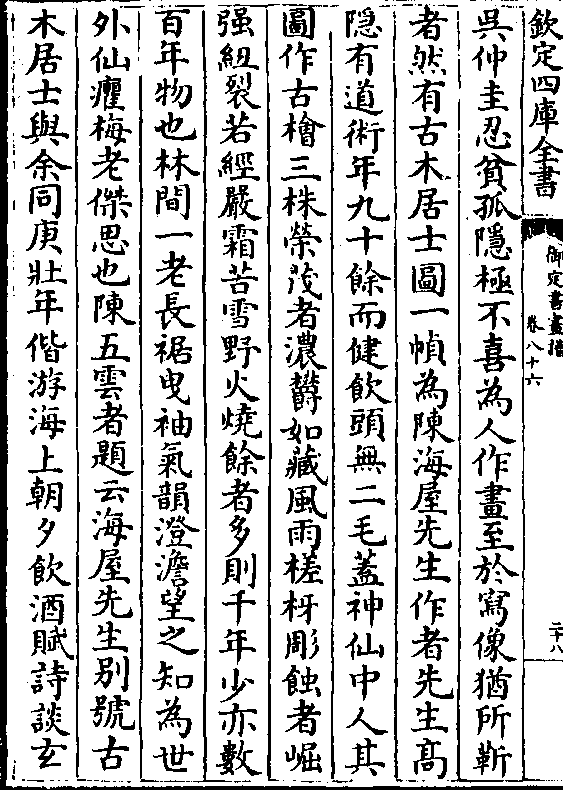 欽定四庫全書
御定書畫譜
卷八十六
二十八
吳仲圭忍貧孤隱極不喜為人作畫至於寫像猶所靳
者然有古木居士圖一幀為陳海屋先生作者先生髙
隱有道術年九十餘而健飲頭無二毛葢神仙中人其
圖作古檜三株榮茂者濃欝如藏風雨槎枒彫蝕者崛
强紐裂若經嚴霜苦雪野火燒餘者多則千年少亦數
百年物也林間一老長裾曳袖氣韻澄澹望之知為世
外仙癯梅老傑思也陳五雲者題云海屋先生别號古
木居士與余同庚壯年偕游海上朝夕飲酒賦詩談玄